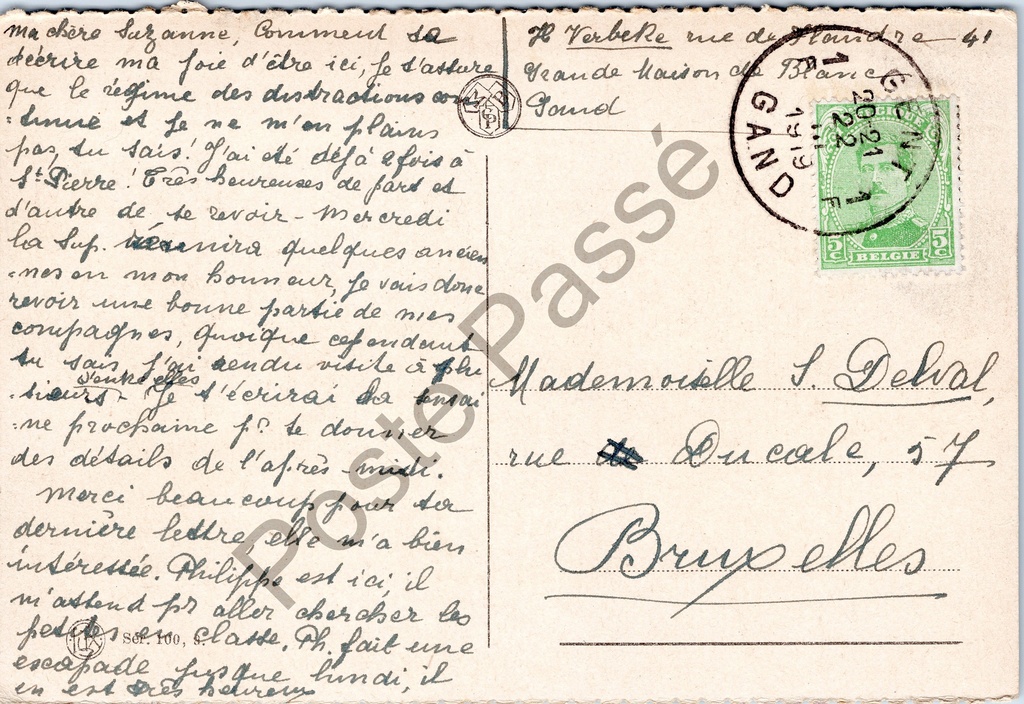 ma chère Suzanne, Comment te
décrire ma joie d'être ici, je t'assure
que le régime des distractions con
-tinue et je ne m'en plains
pas, tu sais! J'ai été déjà 2 fois à
St Pierre! Très heureuses de part et
d'autre de se revoir - Mercredi
la Sup. réunira quelques ancien
-nes en mon honneur, je vais donc
revoir une bonne partie de mes
compagnes, quoique cependant
tu sais j'ai rendu visite à plu
d'entre elles
-sieurs - Je t'écrirai la semai
-ne prochaine pr te donner
des détails de l'après-midi.
Merci beaucoup pour ta
dernière lettre, elle m'a bien
intéressée. Philippe est ici, il
m'attend pr aller chercher les
petites en classe. Ph. fait une
escapade jusque lundi, il
en est très heureux
Sér. 100,
H Verbeke rue de Flandre 41
Grande Maison de Blanc
Gand
GENT 1 F
20-21
22 III
1919
1 F GAND
BELGIQUE
5c 5c
BELGIE
Mademoiselle S. Delval,
rue Ducale, 57
Bruxelles
Poste Passé